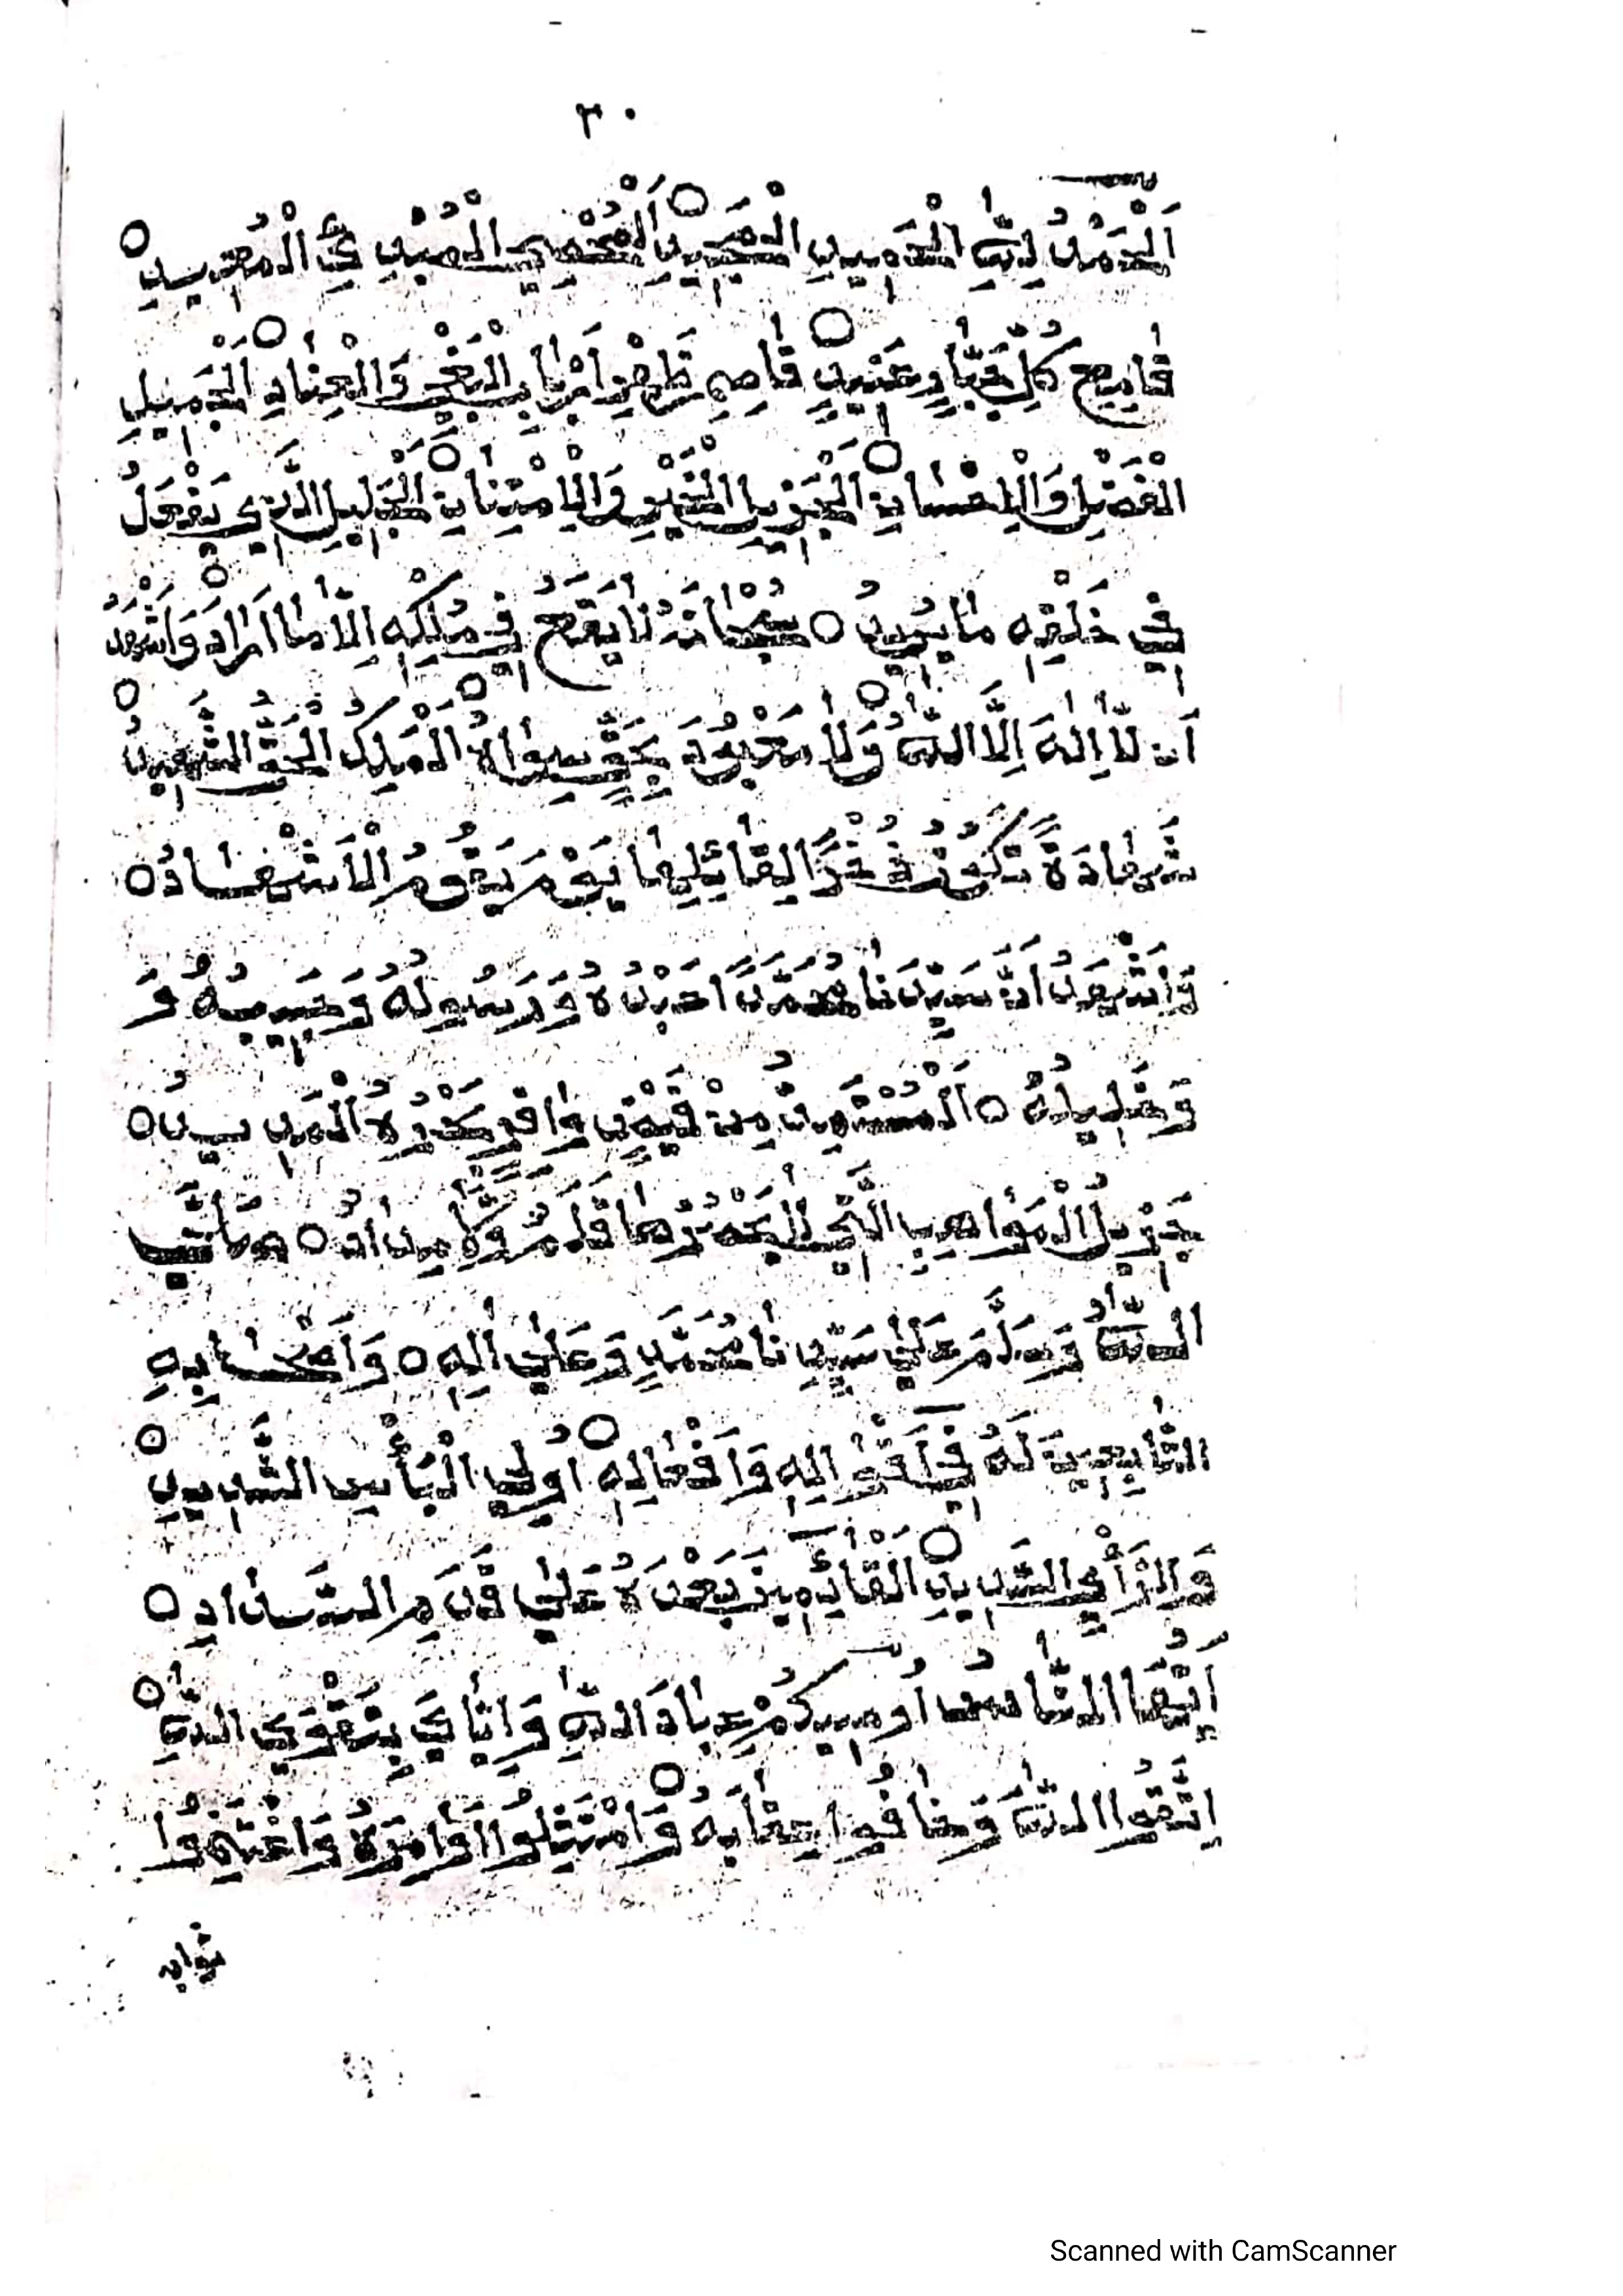 ٣٠
اَلْحَمْدُ لِلّٰهِ الْحَمِيدِ الْمَجِيدِ ○ اَلْمُحْصِي الْمُبْدِي الْمُعِيدِ ○
قَامِعِ كُلِّ جَبَّارٍ عَنِيدٍ ○ قَاصِمِ ظَهْرِ اَرْبَابِ الْبَغْيِ وَالْعِنَادِ ○ اَلْجَمِيلِ
الْفَضْلِ وَالْاِحْسَانِ ○ اَلْجَزِيلِ الْخَيْرِ وَالْاِمْتِنَانِ ○ اَلْجَلِيلِ الَّذِي يَفْعَلُ
فِي خَلْقِهِ مَا يُرِيدُ ○ سُبْحَانَهُ لَا يَقَعُ فِي مُلْكِهِ اِلَّا مَا اَرَادَ ○ وَاَشْهَدُ
اَن لَّا اِلٰهَ اِلَّا اللّٰهُ وَلَا مَعْبُودَ بِحَقٍّ سِوَاهُ ○ الْمَلِكُ الْحَقُّ الشَّهِيدُ ○
شَهَادَةً تَكُونُ ذُخْرًا لِقَائِلِهَا يَوْمَ يَقُومُ الْاَشْهَادُ ○
وَاَشْهَدُ اَنَّ سَيِّدَنَا مُحَمَّدًا عَبْدُهُ وَرَسُولُهُ وَحَبِيبُهُ وَ
وَخَلِيلُهُ ○ اَلْمُسْتَمِدُّ مِنْ فَيْضِ وَافِرِ بَحْرِهِ الْمَدِيدُ ○
جَزِيلُ الْمَوَاهِبِ الَّتِي لَا يَحْصُرُهَا قَلَمٌ وَلَا مِدَادُ ○ صَلَّى
اللّٰهُ وَسَلَّمَ عَلٰى سَيِّدِنَا مُحَمَّدٍ وَعَلٰى اٰلِهِ ○ وَاَصْحَابِهِ
التَّابِعِينَ لَهُ فِي اَقْوَالِهِ وَاَفْعَالِهِ ○ اُولِي الْبَأْسِ الشَّدِيدِ ○
وَالرَّأْيِ السَّدِيدِ ○ اَلْقَائِمِينَ بَعْدَهُ عَلٰى قَدَمِ السَّدَادِ ○
اَيُّهَا النَّاسُ اُوصِيكُمْ عِبَادَ اللّٰهِ وَاِيَّايَ بِتَقْوَى اللّٰهِ ○
اِتَّقُوا اللّٰهَ وَخَافُوا عِقَابَهُ ○ وَامْتَثِلُوا اَوَامِرَهُ وَاغْتَنِمُوا
ثوابه
Scanned with CamScanner